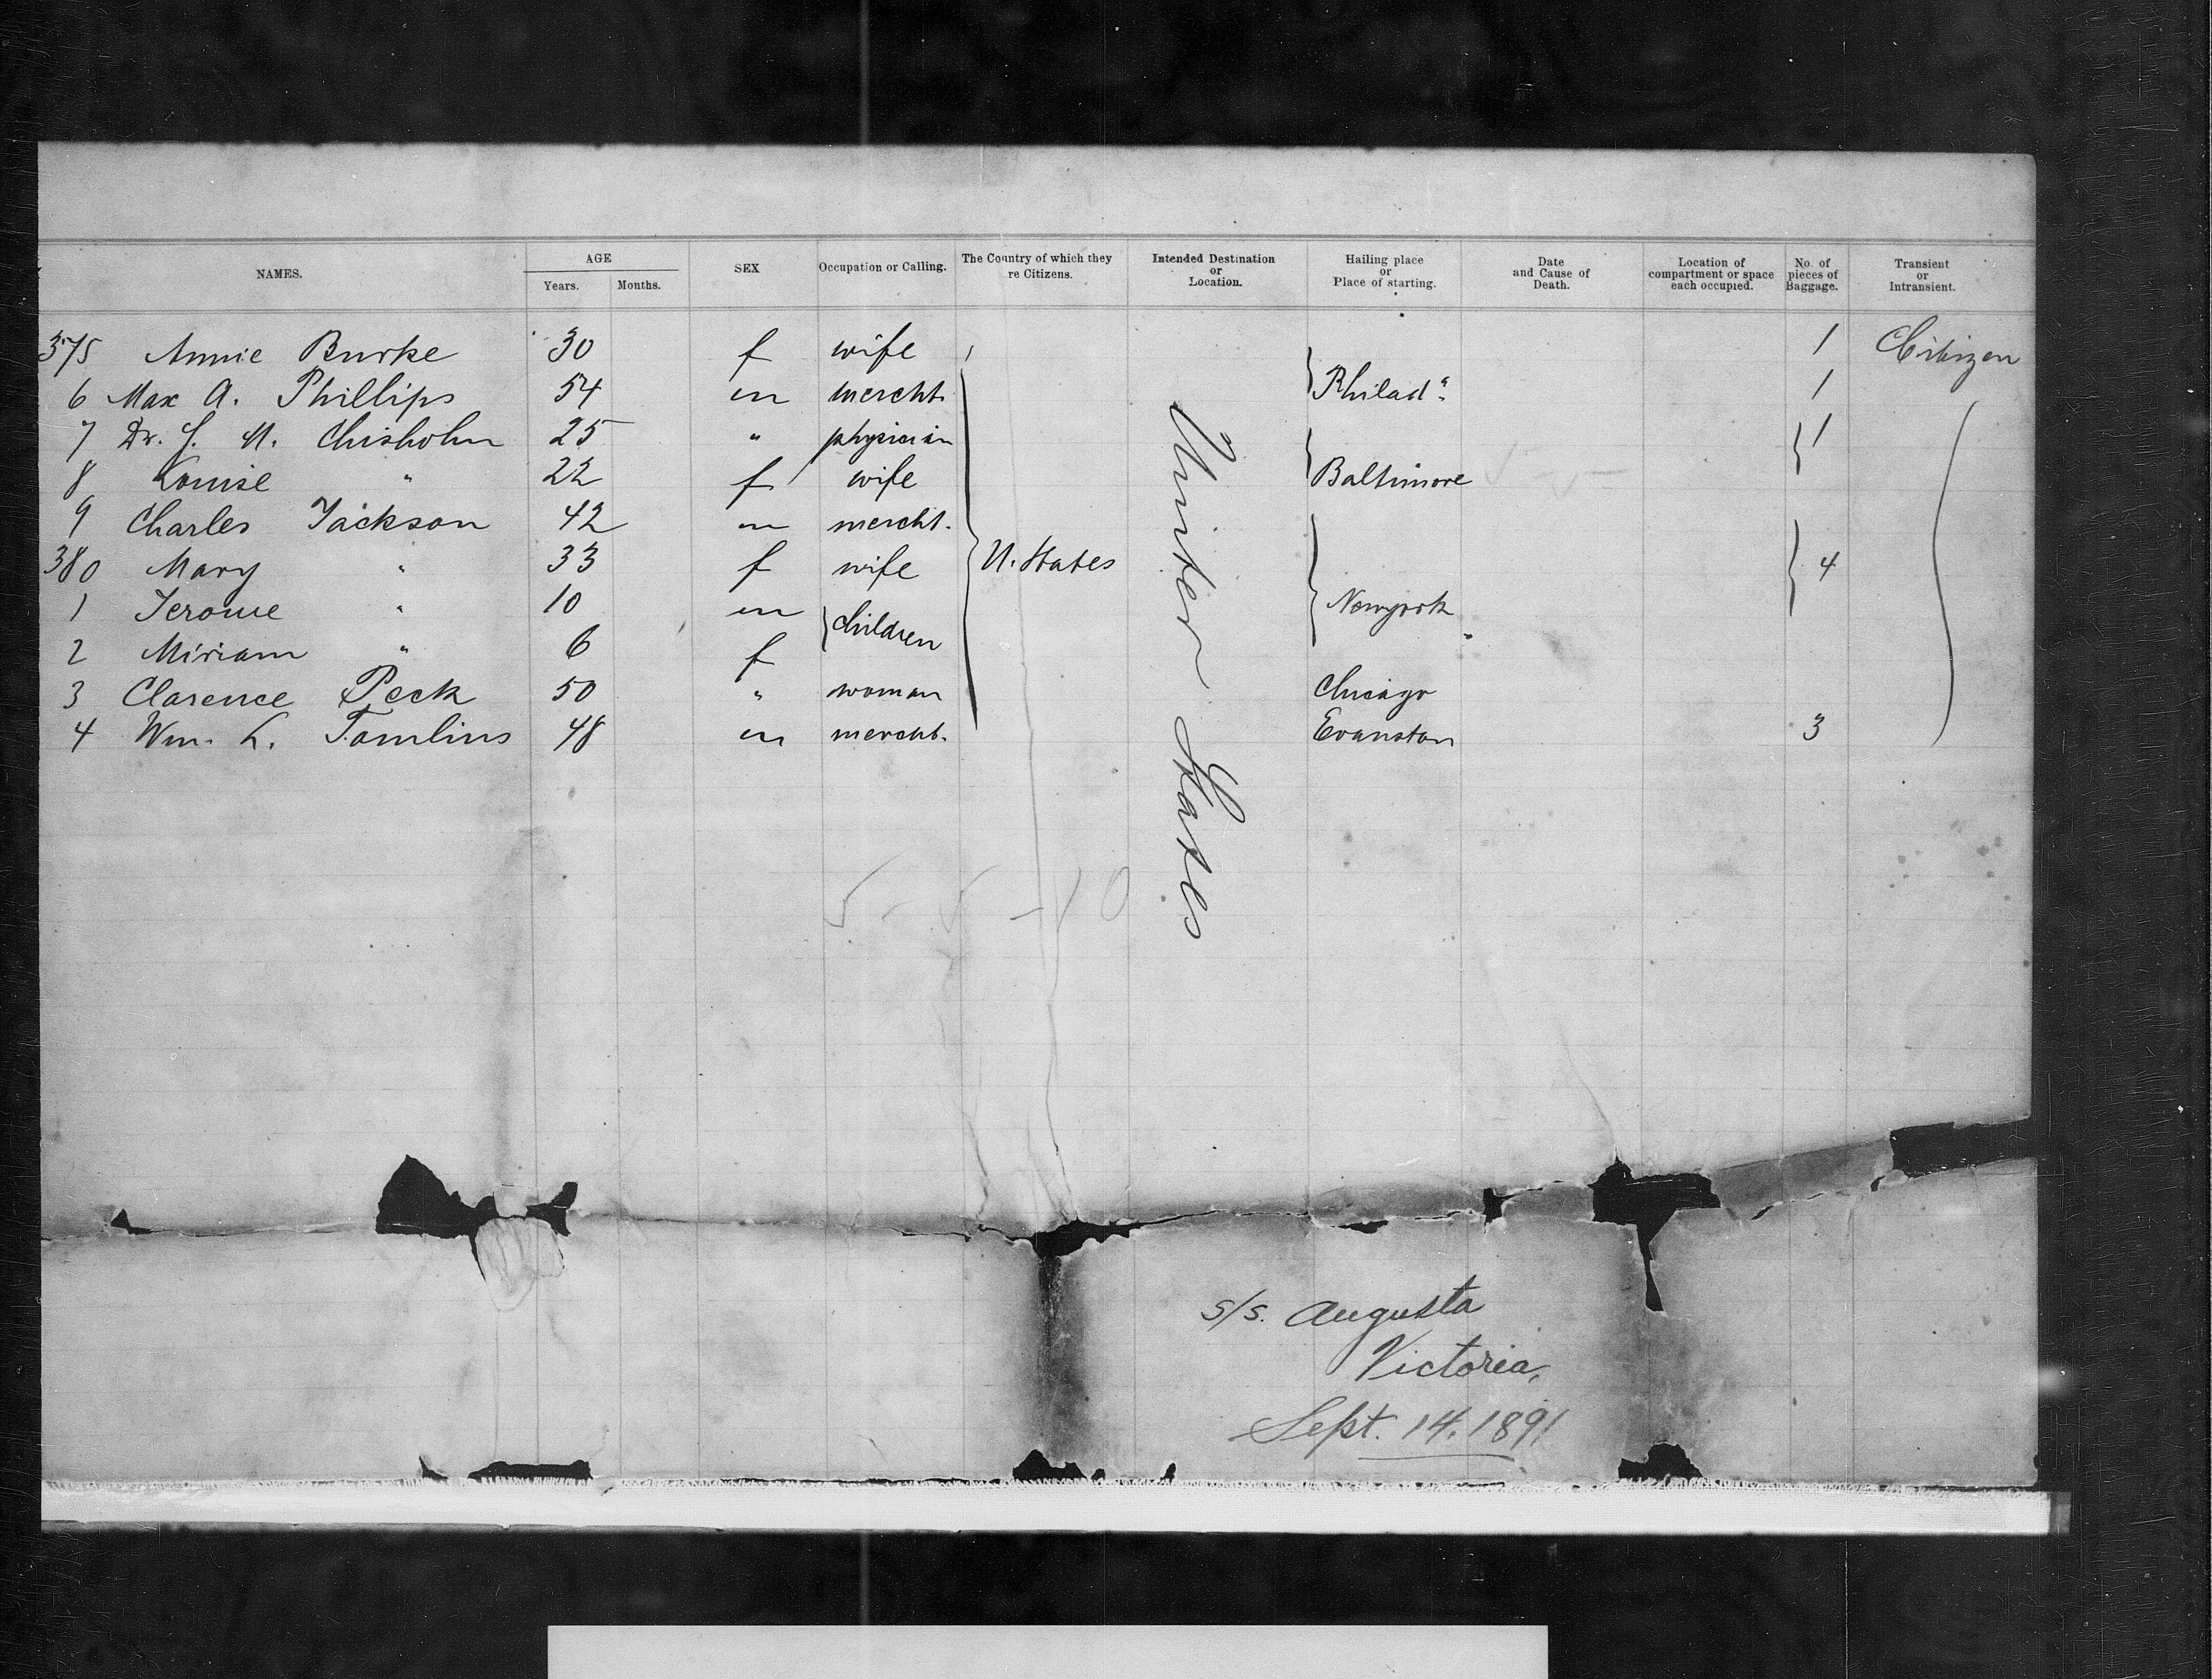 NAMES. AGE SEX Occupation or Calling. The Country of which they re Citizens. Intended Destination or Location. Hailing place or Place of starting. Date and Cause of Death. Location of compartment or space each occupied. No. of pieces of Baggage. Transient or Intransient.
Years. Months.
375 Annie Burke 30 f wife 1 Citizen
6 Max A. Phillips 54 m mercht. Philada. 1
7 Dr. J. M. Chisholm 25 " physician 1
8 Louise " 22 f wife Baltimore
9 Charles Jackson 42 m mercht.
380 Mary " 33 f wife U. States 4
1 Jerome " 10 m children Newyork
2 Miriam " 6 f
3 Clarence Peck 50 " woman Chicago
4 Wm. L. Tomlins 48 m mercht. Evanston 3
United States
5 - 5 - 10
s/s. Augusta
Victoria,
Sept. 14. 1891